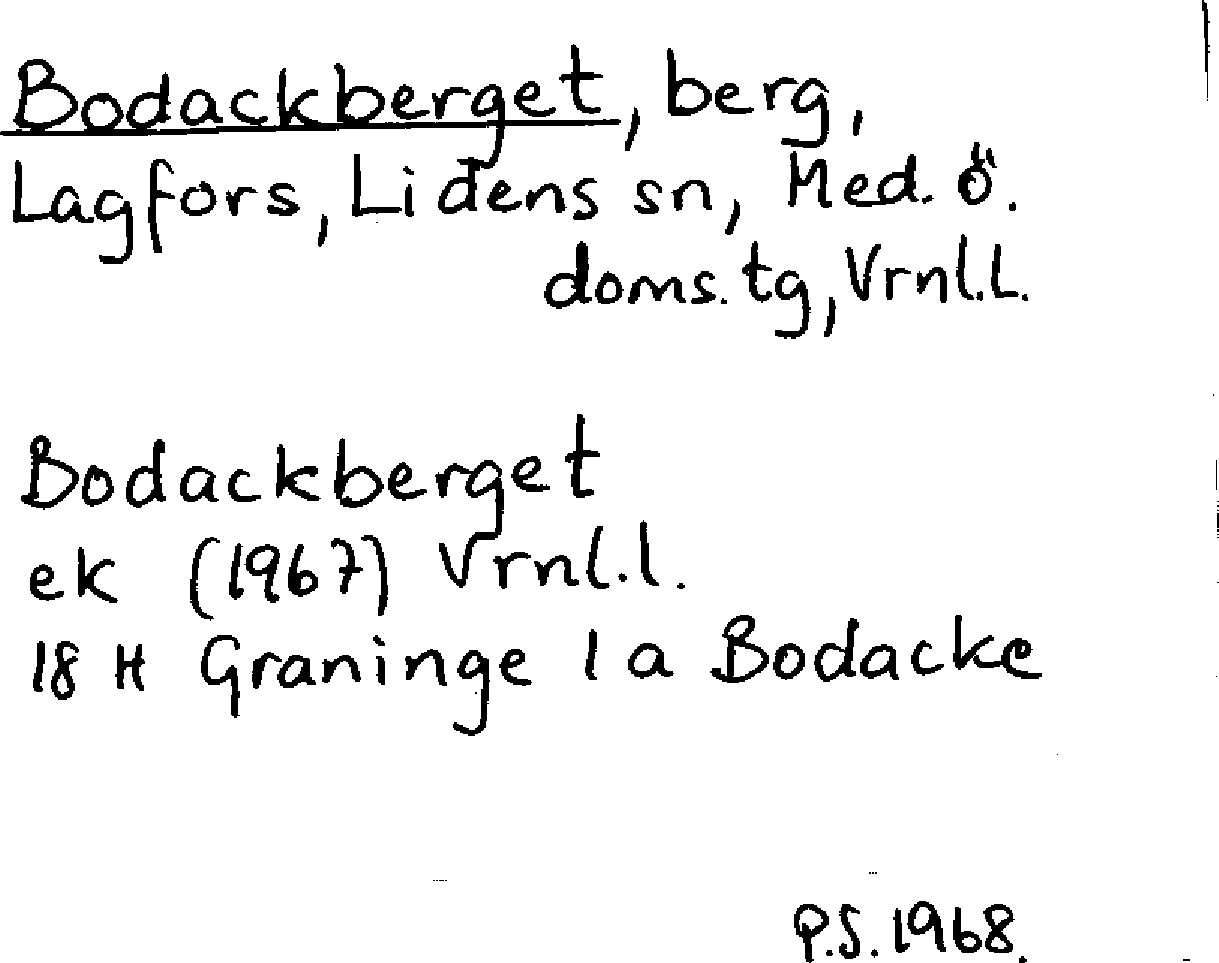 Bodackberget, berg,
Lagfors, Lidens sn, Med. ö.
doms. tg, Vrnl.L.
Bodackberget
ek (1967) Vrnl.l.
18 H Graninge 1 a Bodacke
P.S. 1968.